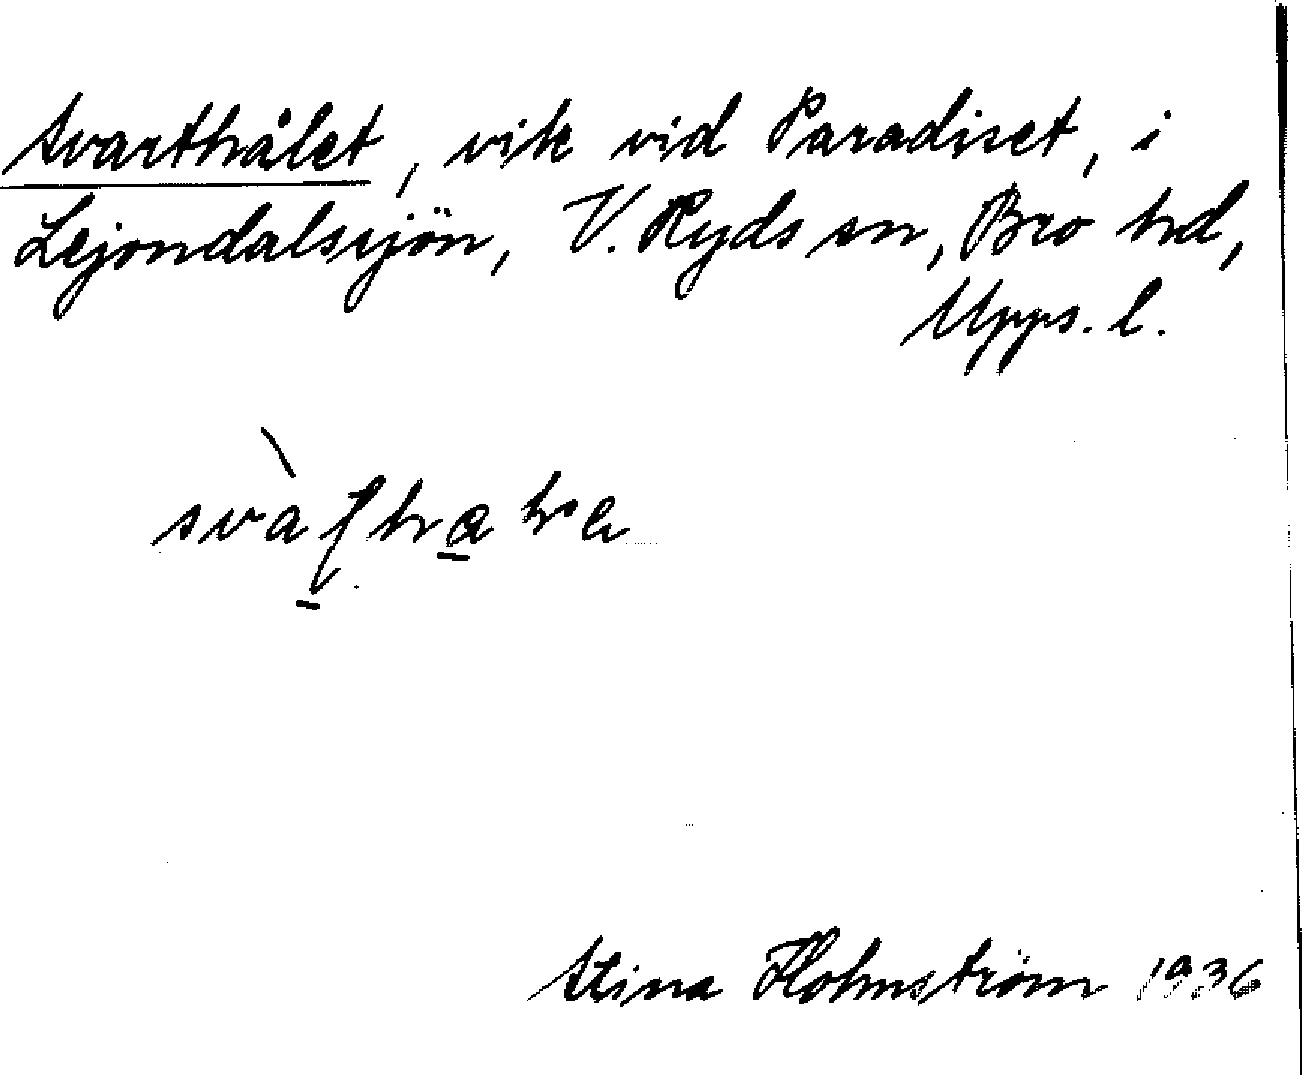 Svarthålet, vik vid Paradiset, i
Lejondalssjön, V. Ryds sn, Bro hd,
Upps. l.
Stina Holmström 1936